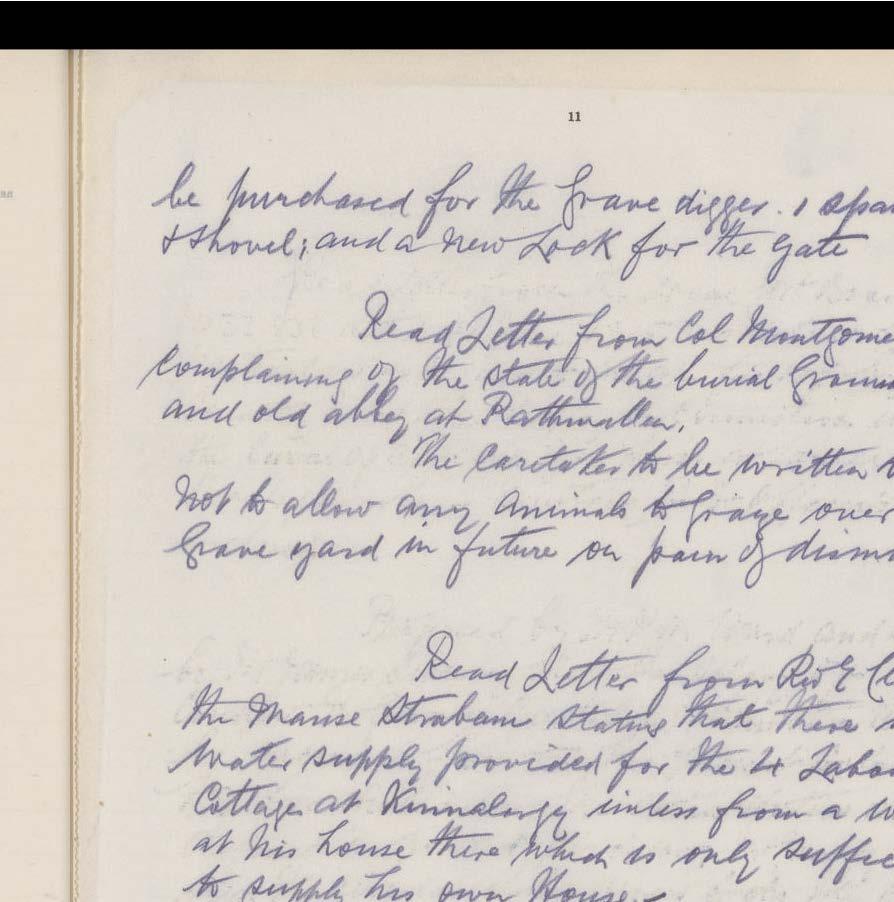 11
be purchased for the Grave digger. 1 spa
& Shovel; and a new Lock for the Gate
Read Letter from Col Montgome
complaining of the state of the burial Groun
and old abbey at Rathmullen.
The Caretaker to be written t
not to allow any animals to Graze over
Grave yard in future on pain of dism
Read Letter from Rev E
the Manse Strabane stating that there
water supply provided for the 4 Labo
Cottages at Kinnalargy unless from a w
at his house there which is only suffic
to supply his own House.